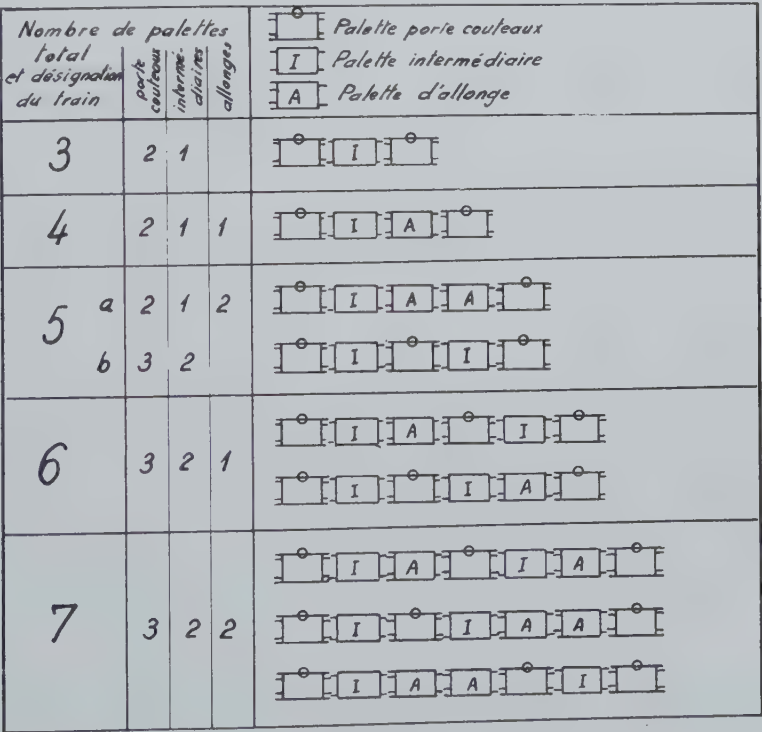 Nombre de palettes
total
et désignation
du train
porte
couteaux
intermé-
diaires
allonges
Palette porte couteaux
I Palette intermédiaire
A Palette d'allonge
3 2 1
I
4 2 1 1
I A
5 a 2 1 2
I A A
b 3 2
I I
6 3 2 1
I A I
I I A
7 3 2 2
I A I A
I I A A
I A A I